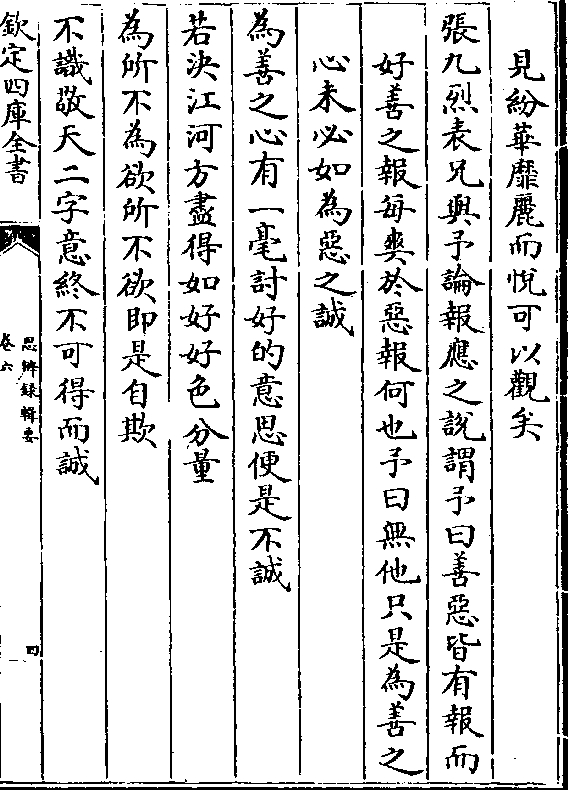 見紛華靡麗而悅可以觀矣
張九烈表兄與予論報應之說謂予曰善惡皆有報而
好善之報每爽於惡報何也予曰無他只是為善之
心未必如為惡之誠
為善之心有一毫討好的意思便是不誠
若決江河方盡得如好好色分量
為所不為欲所不欲即是自欺
不識敬天二字意終不可得而誠
欽定四庫全書
思辨録輯要
卷六
四